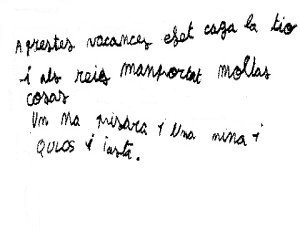 Aprestes vacances efet caga la tio
i als reis manportat moltas
cosas
Un Na pisara i Una nina i
QUIOS i iasta.